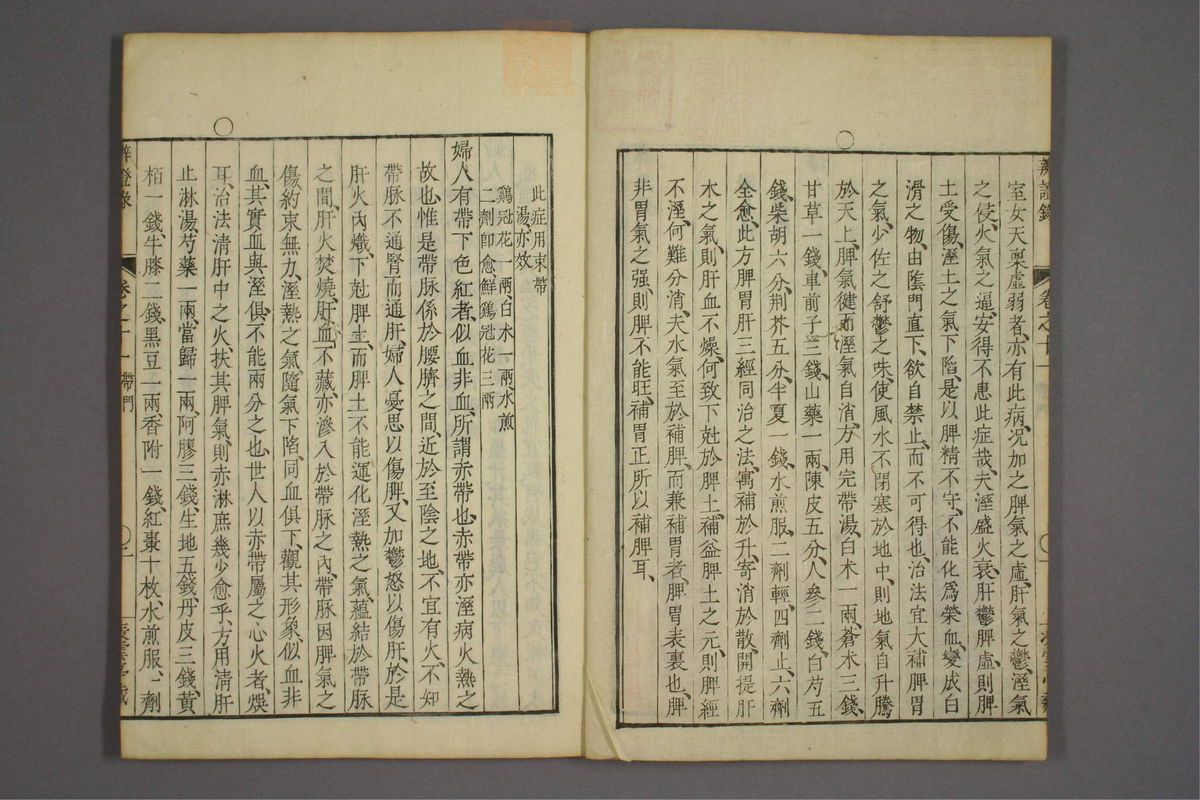 室女天稟虛弱者、亦有此病、况加之脾氣之虛、肝氣之鬱、溼氣
之侵、火氣之逼、安得不患此症哉、夫溼盛火衰、肝鬱脾虛、則脾
土受傷、溼土之氣下陷、是以脾精不守、不能化爲榮血、變成白
滑之物、由陰門直下、欲自禁止、而不可得也、治法宜大補脾胃
之氣、少佐之舒鬱之味、使風水不閉塞於地中、則地氣自升騰
於天上、脾氣健而溼氣自消、方用完帶湯、白术一兩、蒼术三錢、
甘草一錢、車前子三錢、山藥一兩、陳皮五分、人參二錢、白芍五
錢、柴胡六分、荆芥五分、半夏一錢、水煎服、二劑輕、四劑止、六劑
全愈、此方脾胃肝三經同治之法、寓補於升、寄消於散、開提肝
木之氣、則肝血不燥、何致下尅於脾土、補益脾土之元、則脾經
不溼、何難分消、夫水氣至於補脾、而兼補胃者、脾胃表裏也、脾
非胃氣之强、則脾不能旺、補胃正所以補脾耳、
此症用束帶
湯亦效
鷄冠花一兩白术一兩、水煎
二劑卽愈、鮮鷄冠花三兩
婦人有帶下色紅者、似血非血、所謂赤帶也、赤帶亦溼病火熱之
故也、惟是帶脉係於腰臍之間、近於至陰之地、不宜有火、不知
帶脉不通腎而通肝、婦人憂思以傷脾、又加鬱怒以傷肝、於是
肝火內熾、下尅脾土、而脾土不能運化、溼熱之氣、蘊結於帶脉
之間、肝火焚燒、肝血不藏、亦滲入於帶脉之內、帶脉因脾氣之
傷、約束無力、溼熱之氣、隨氣下陷、同血俱下、觀其形象、似血非
血、其實血與溼俱、不能兩分之也、世人以赤帶屬之心火者、悞
耳、治法清肝中之火、扶其脾氣、則赤淋庶幾少愈乎、方用清肝
止淋湯、芍藥一兩、當歸一兩、阿膠三錢、生地五錢、丹皮三錢、黃
栢一錢、牛膝二錢、黑豆一兩、香附一錢、紅棗十枚、水煎服、一劑
辨證錄 卷之十一 帶門